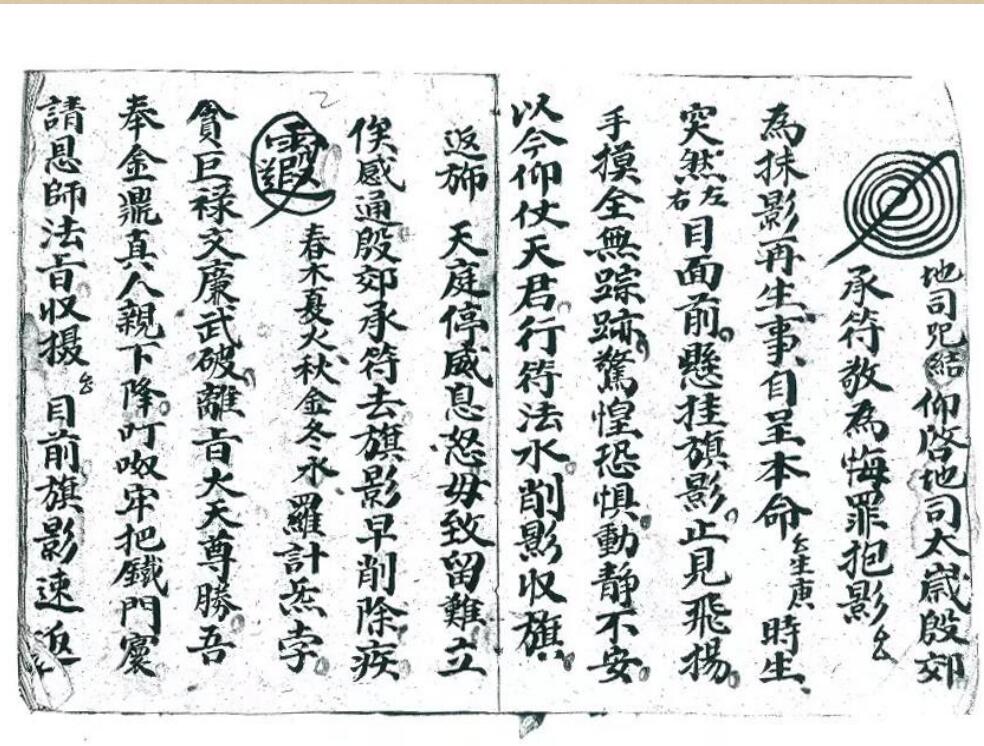 地司咒結 仰啓地司太歲殷郊
承符敬為悔罪抱影
為抹影再生事自呈本命 生庚 時生
突然左右目面前懸挂旗影止見飛揚
手摸全無踪跡驚惶恐惧動静不安
以今仰仗天君行符法水削影収旗
返斾 天庭停威息怒毋致留難立
俟感通殷郊承符去旗影早削除疾
春木夏火秋金冬水羅計炁孛
貪巨禄文廉武破離旨大天尊勝吾
奉金鼎真人親下降叮呶牢把鐵門
請恩師法旨収摄 目前旗影速返